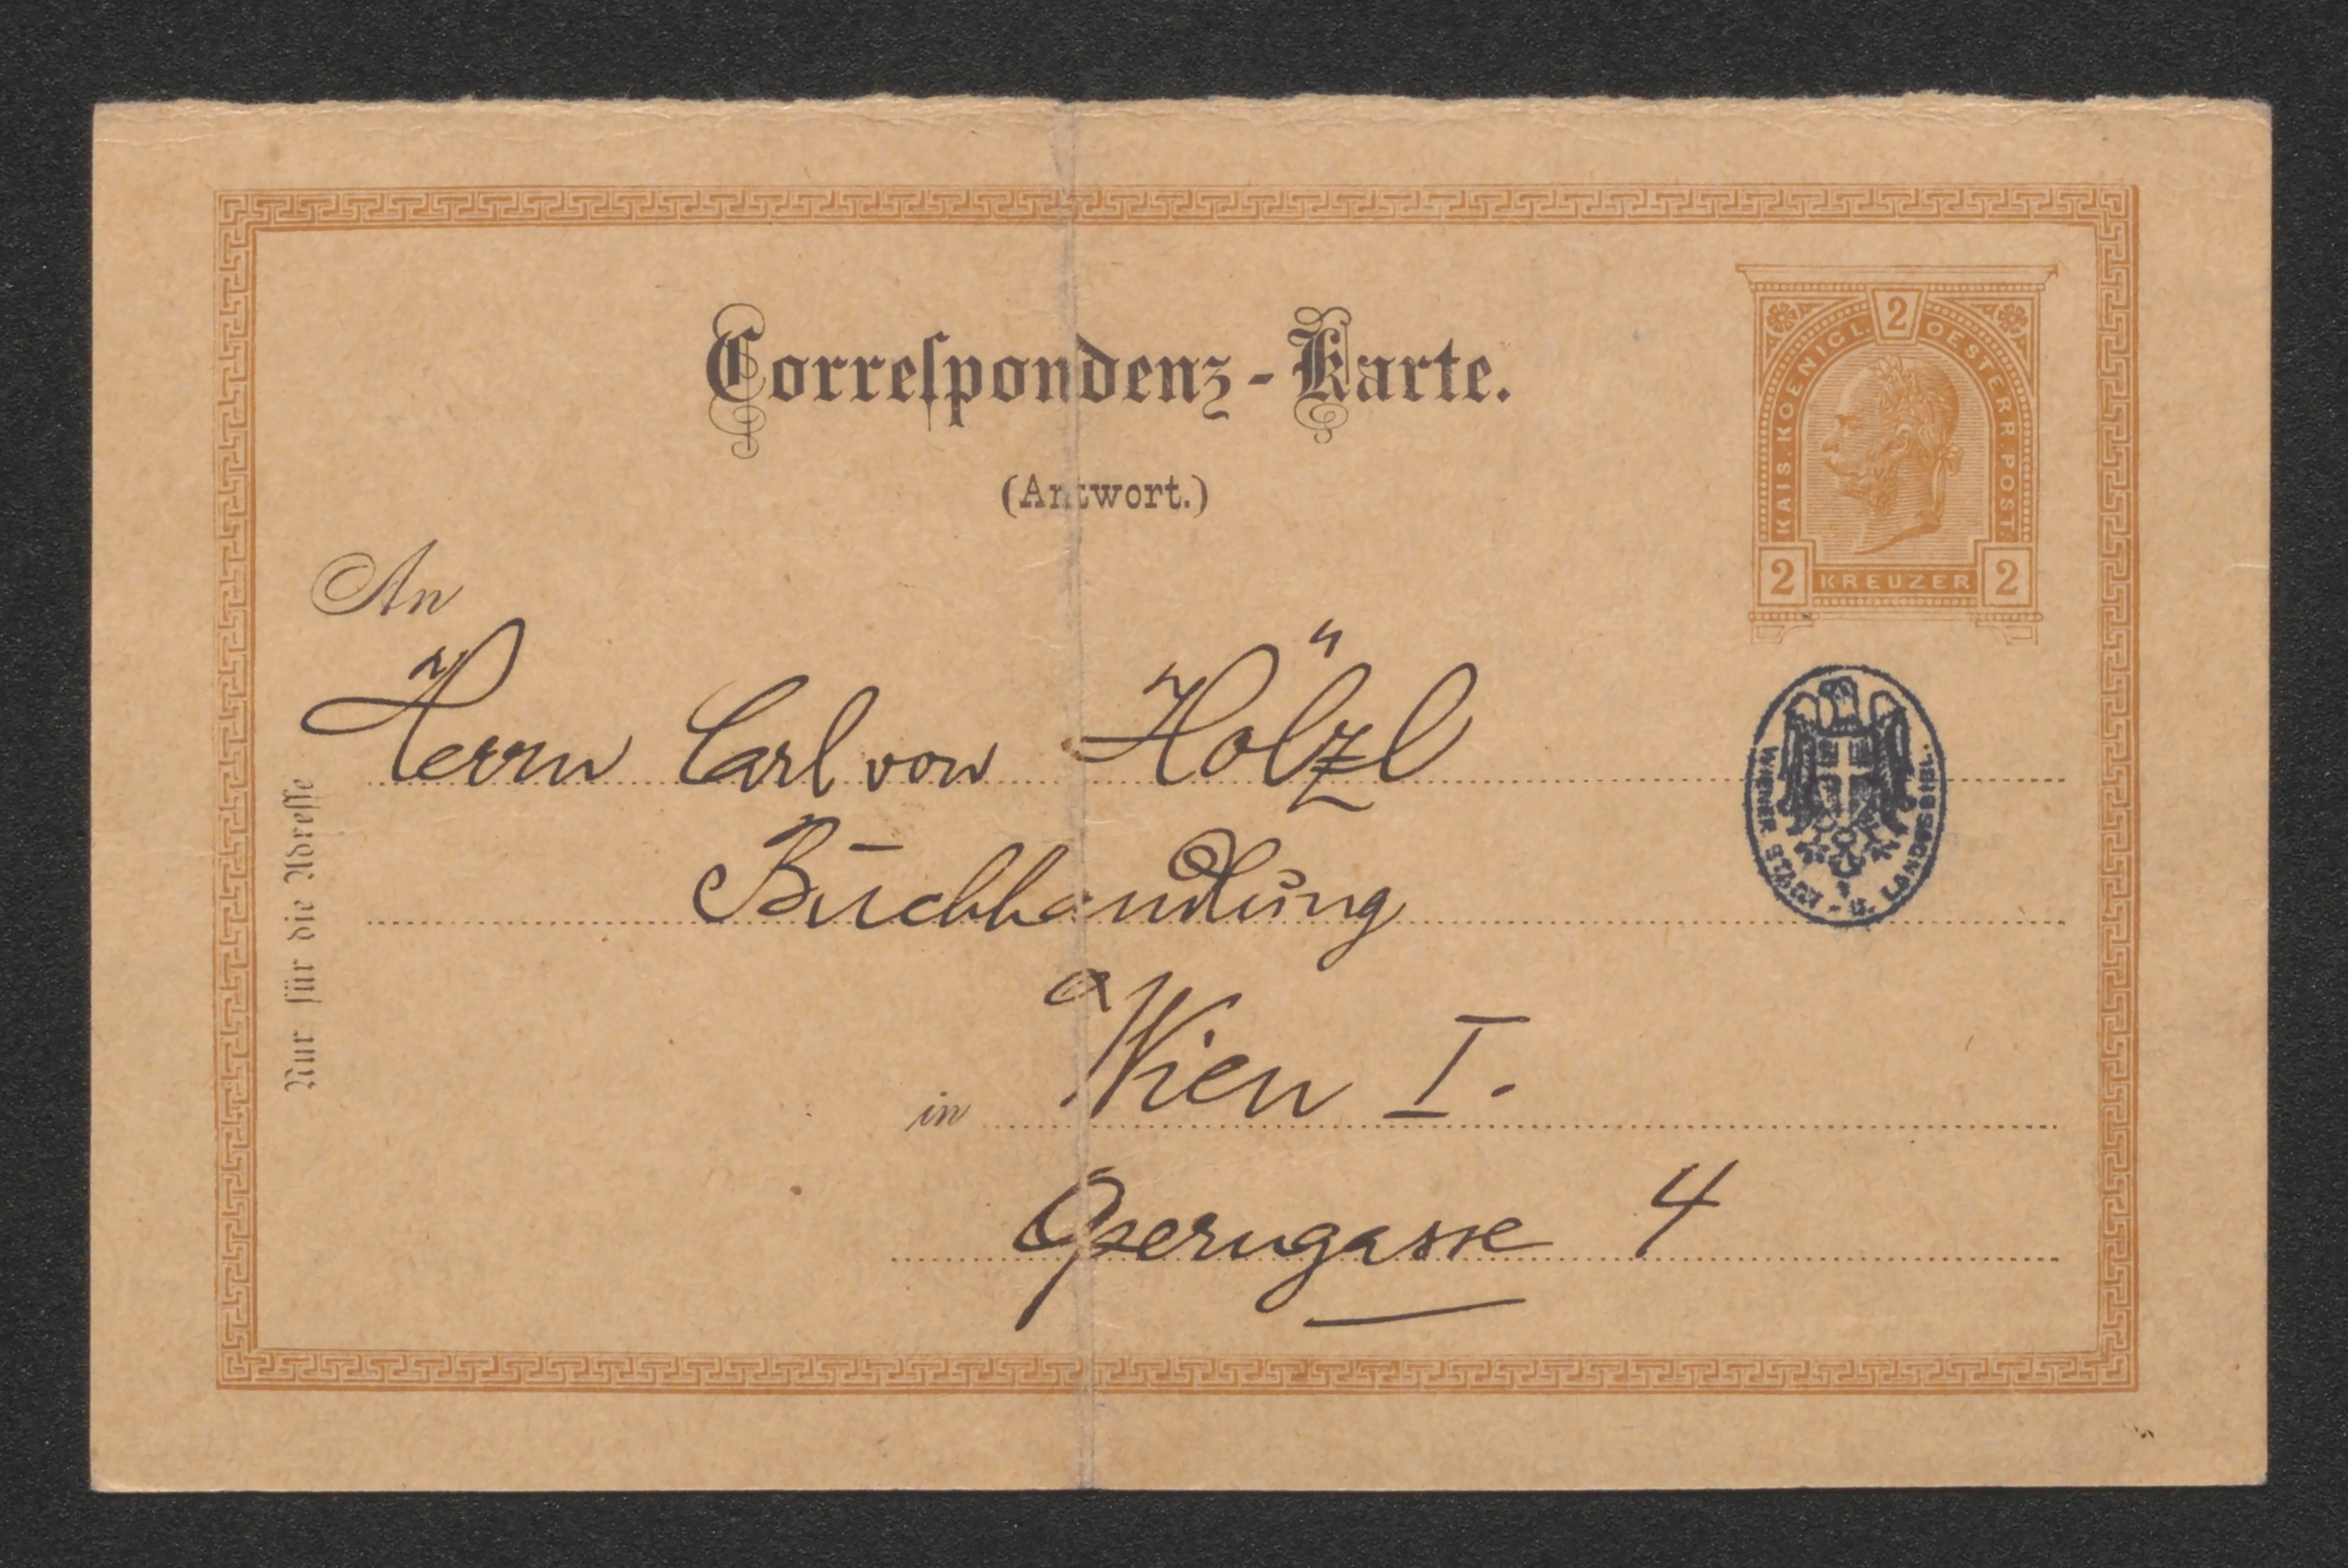 Correſpondenz-Karte.
(Antwort.)
2
KAIS. KOENIGL. OESTERR. POST.
2 KREUZER 2
An
Herrn Carl von Hölzl
Buchhandlung
in Wien I.
Operngasse 4
Nur für die Adreſſe
WIENER STADT- U. LANDESBIBL.